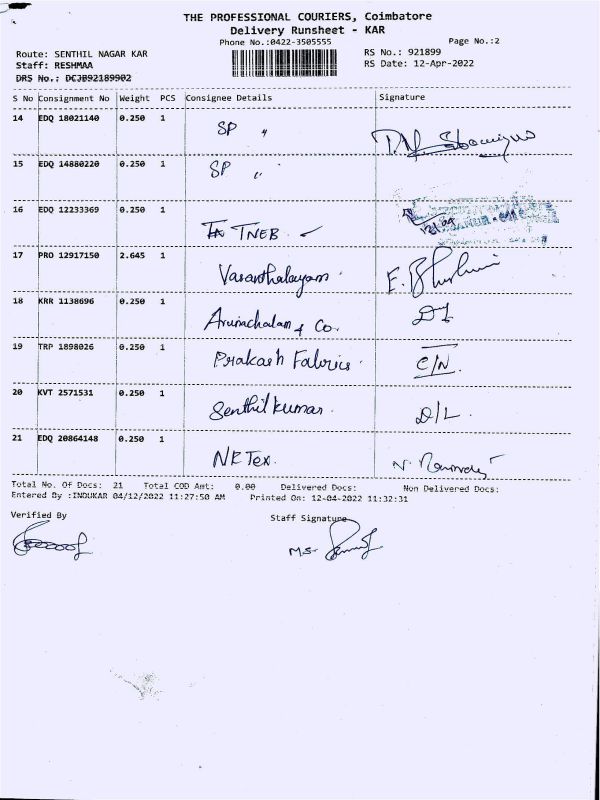 THE PROFESSIONAL COURIERS, Coimbatore
Delivery Runsheet - KAR
Phone No.:0422-3505555
Page No.:2
Route: SENTHIL NAGAR KAR
RS No.: 921899
Staff: RESHMAA
RS Date: 12-Apr-2022
DRS No.: DCJB92189902
S No Consignment No Weight PCS Consignee Details Signature
14 EDQ 18021140 0.250 1 SP "
15 EDQ 14880220 0.250 1 SP "
16 EDQ 12233369 0.250 1 TNEB
17 PRO 12917150 2.645 1 Vasanthalayam
18 KRR 1138696 0.250 1 Arunachalam & Co.
19 TRP 1898026 0.250 1 Prakash Fabrics C/N.
20 KVT 2571531 0.250 1 Senthil kumar D/L.
21 EDQ 20864148 0.250 1 NR Tex.
Total No. Of Docs: 21 Total COD Amt: 0.00 Delivered Docs: Non Delivered Docs:
Entered By :INDUKAR 04/12/2022 11:27:50 AM Printed On: 12-04-2022 11:32:31
Verified By
Staff Signature
M.S.